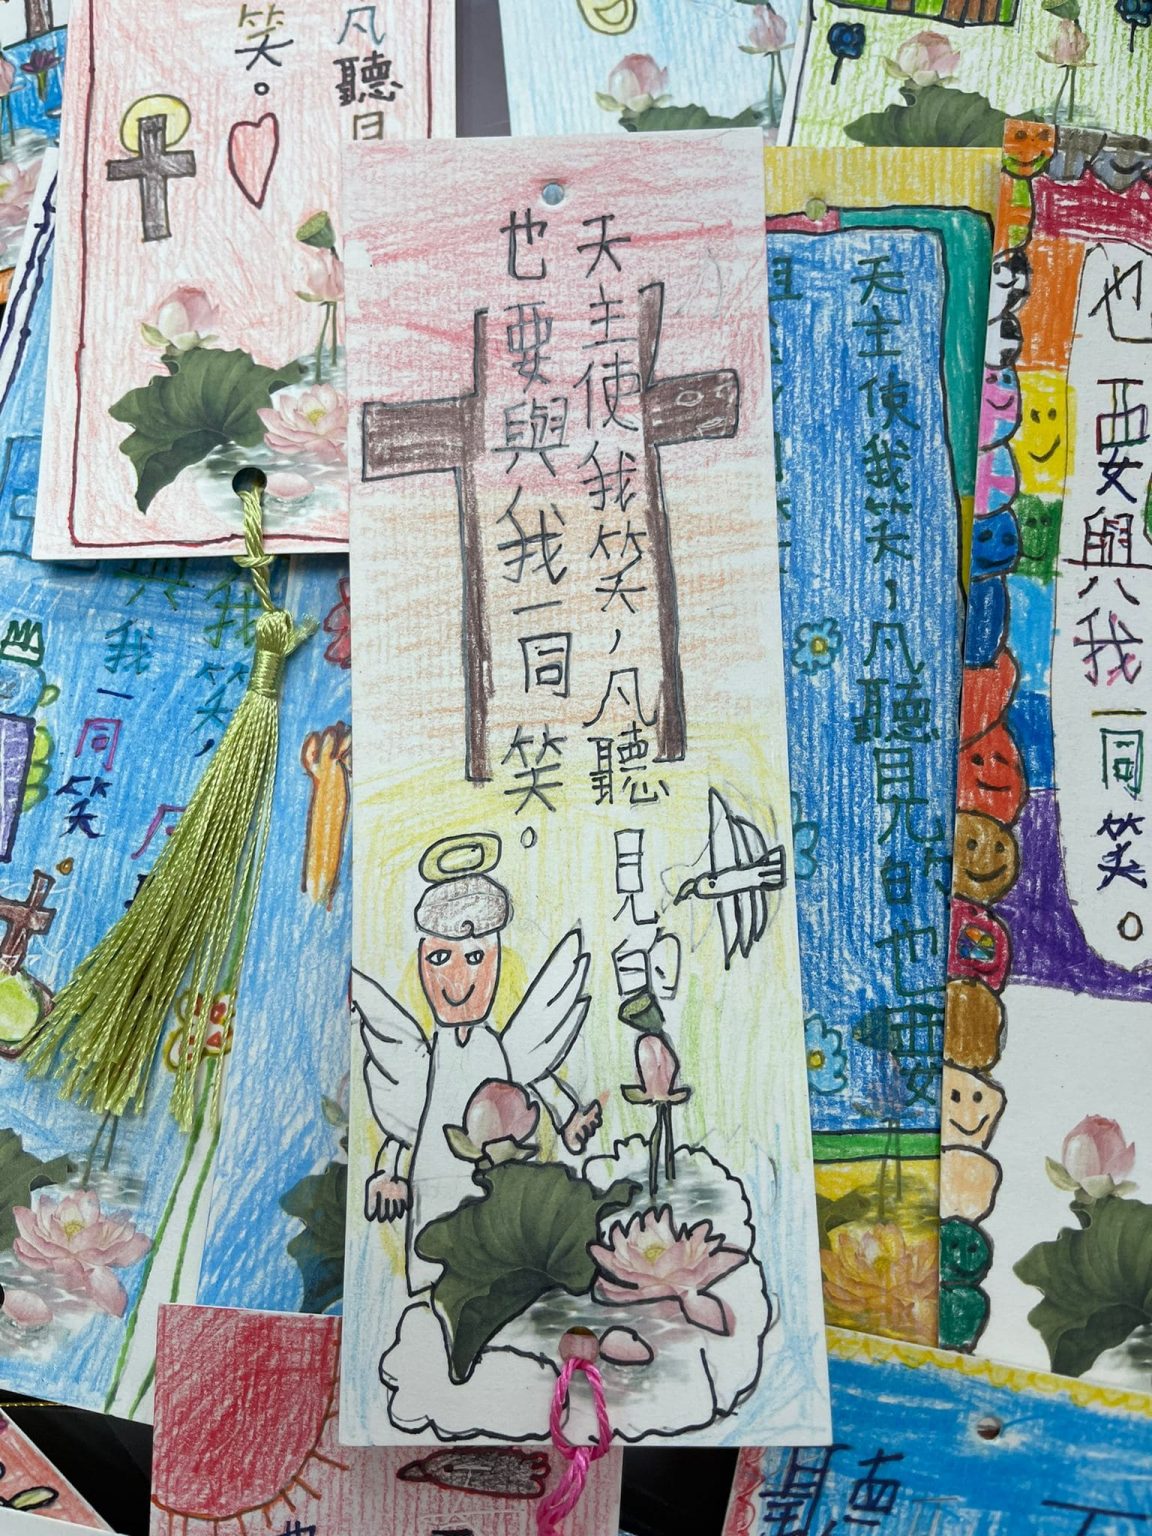 天主使我笑，凡聽見的
也要與我一同笑。
凡聽
笑。
天主使我笑，凡聽見的也要
也要與我一同笑。
我笑，
與我一同笑。
聽